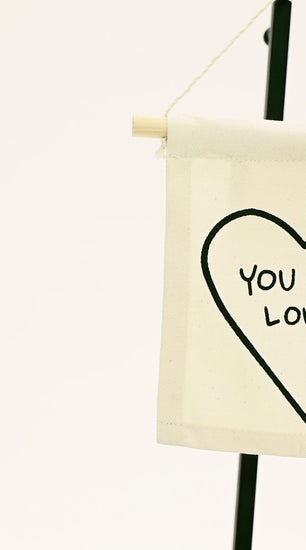 YOU
LO